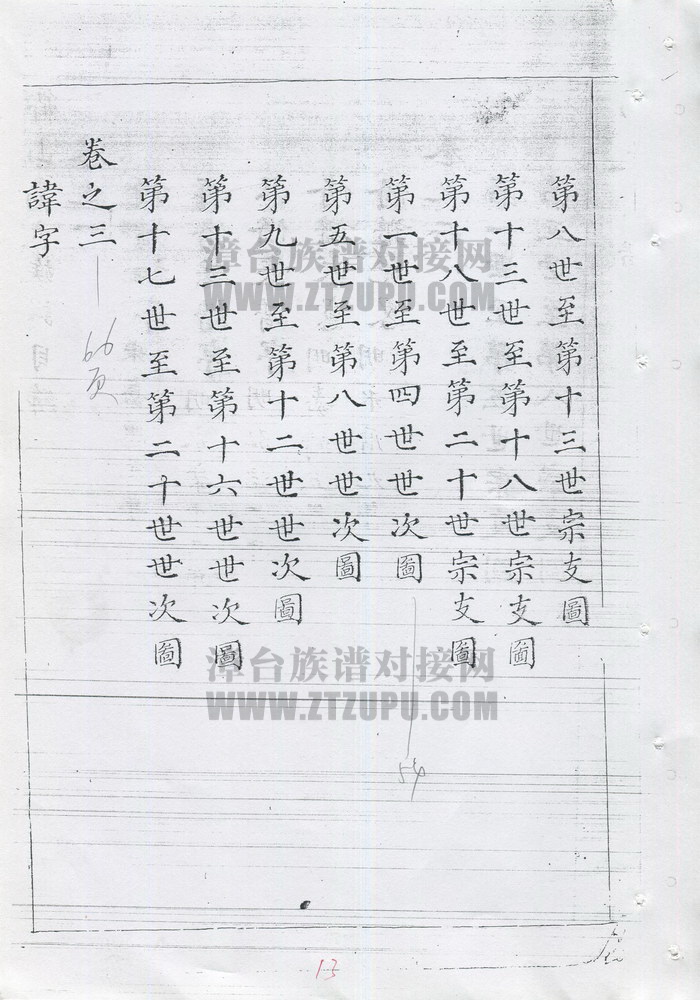 第八世至第十三世宗支圖
第十三世至第十八世宗支圖
第十八世至第二十世宗支圖
第一世至第四世世次圖
54
第五世至第八世世次圖
第九世至第十二世世次圖
第十三世至第十六世世次圖
第十七世至第二十世世次圖
卷之三
66页
諱字
漳台族谱对接网
WWW.ZTZUPU.COM
漳台族谱对接网
WWW.ZTZUPU.COM
13